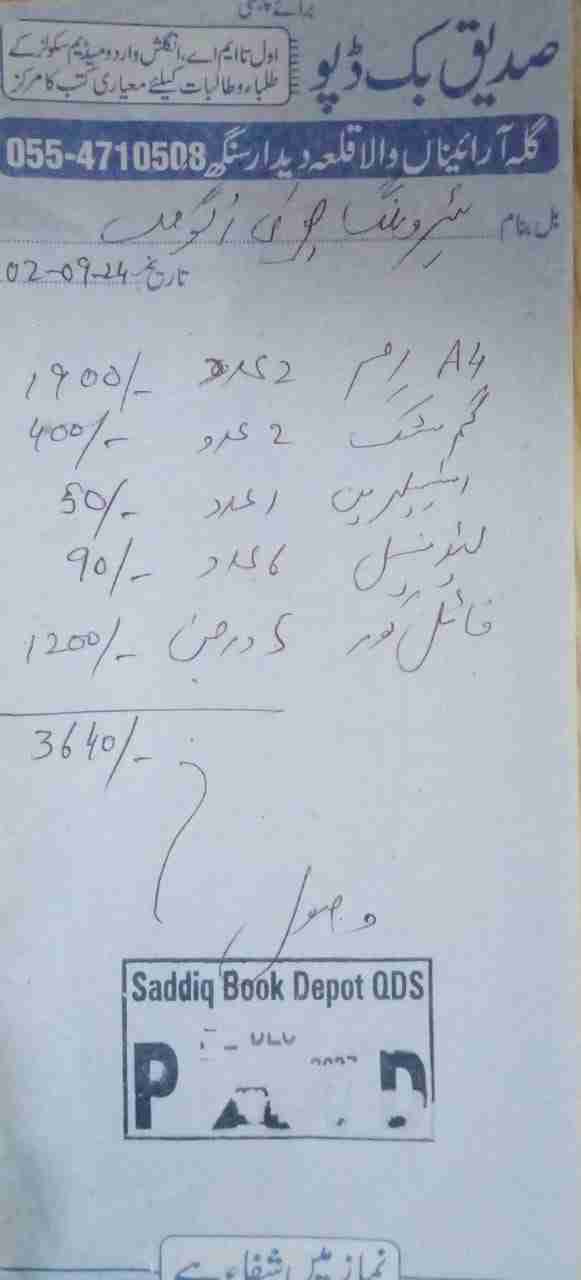 برائے پرچی
صدیق بک ڈپو
اول تا ایم اے، انگلش و اردو میڈیم سکولز کے
طلباء و طالبات کیلئے معیاری کتب کا مرکز
گلہ آرائیناں والا قلعہ دیدار سنگھ 055-4710508
بل بنام پٹرولنگ
تاریخ 02-09-24
A4 رم 2 عدد 1900/-
گم سٹک 2 عدد 400/-
1 عدد 50/-
لیڈ پنسل 6 عدد 90/-
فائل کور 5 درجن 1200/-
3640/-
وصول
Saddiq Book Depot QDS
P D
نماز میں شفاء ہے